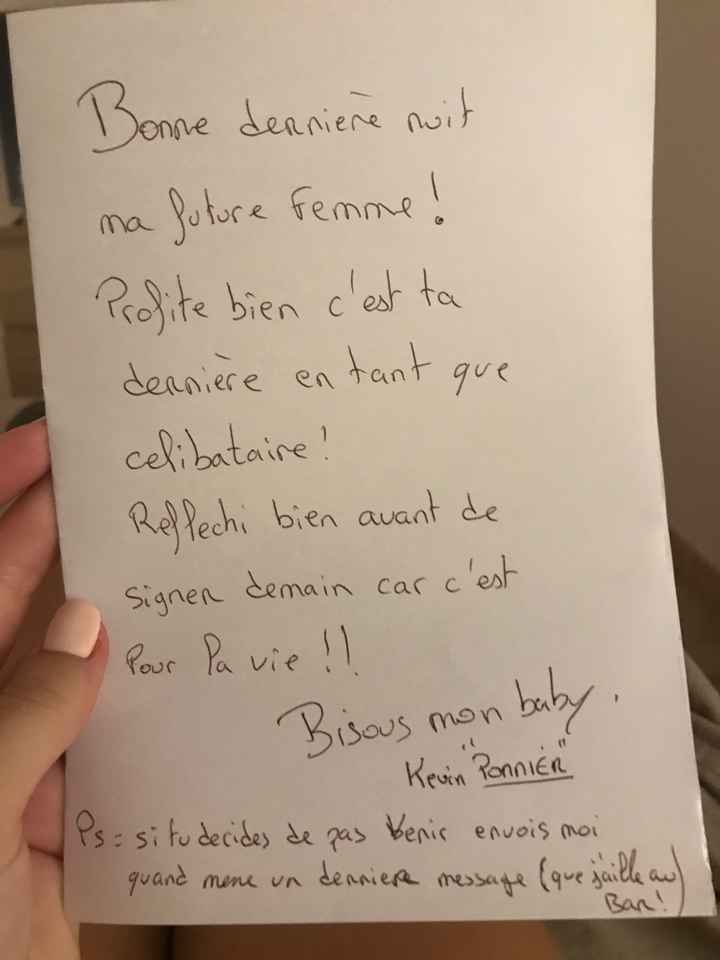 Bonne dernière nuit
ma future Femme !
Profite bien c'est ta
dernière en tant que
celibataire !
Reflechi bien avant de
signer demain car c'est
Pour la vie !!
Bisous mon baby.
Kevin "Ponnier"
Ps = si tu decides de pas venir envois moi
quand meme un derniere message (que j'aille au)
Bar !